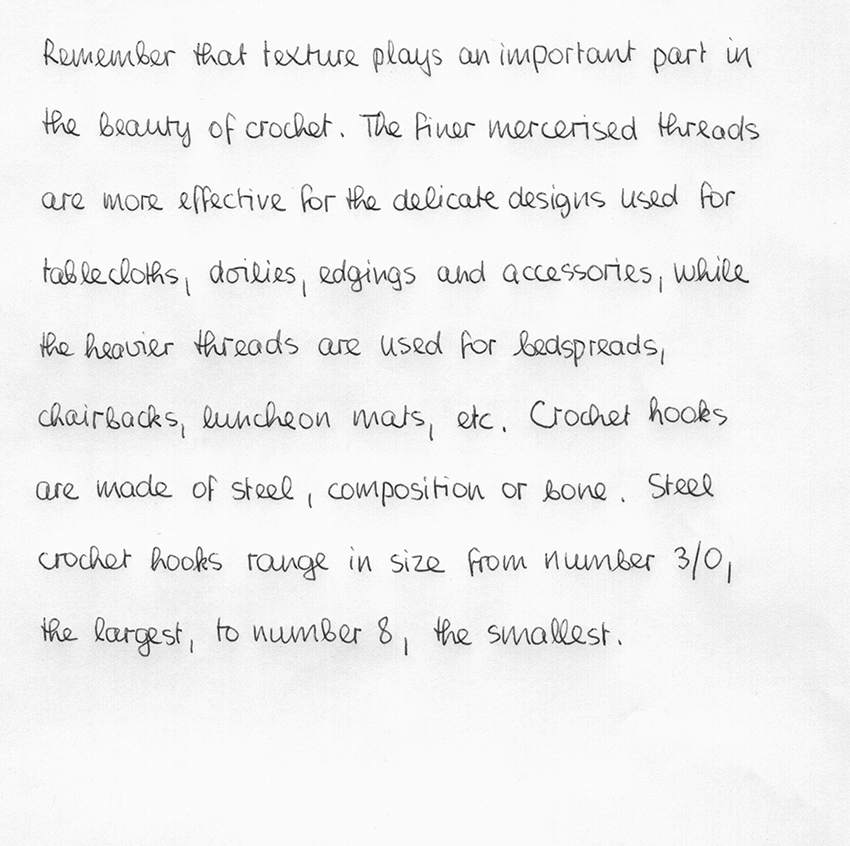 Remember that texture plays an important part in
the beauty of crochet. The finer mercerised threads
are more effective for the delicate designs used for
tablecloths, doilies, edgings and accessories, while
the heavier threads are used for bedspreads,
chairbacks, luncheon mats, etc. Crochet hooks
are made of steel, composition or bone. Steel
crochet hooks range in size from number 3/0,
the largest, to number 8, the smallest.